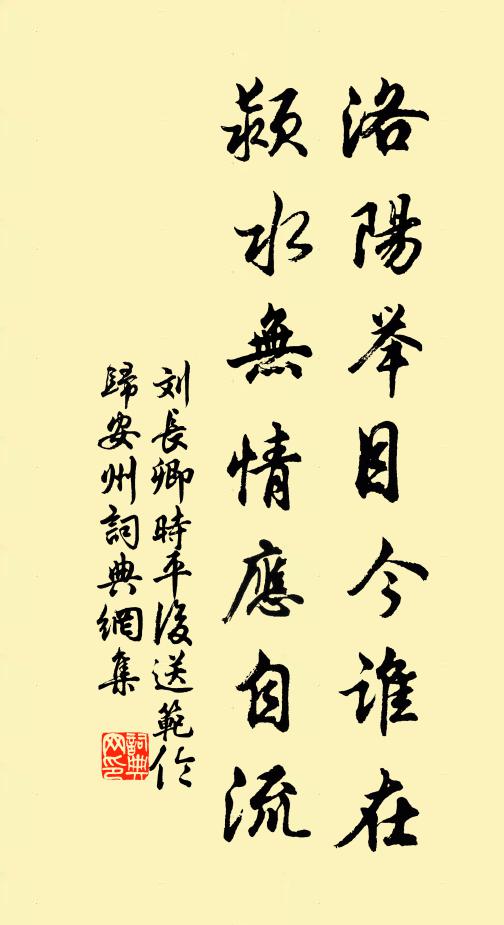 洛陽举目今谁在
潁水無情應自流
刘長卿時平後送範伦
歸安州詞典網集
詞典
网印